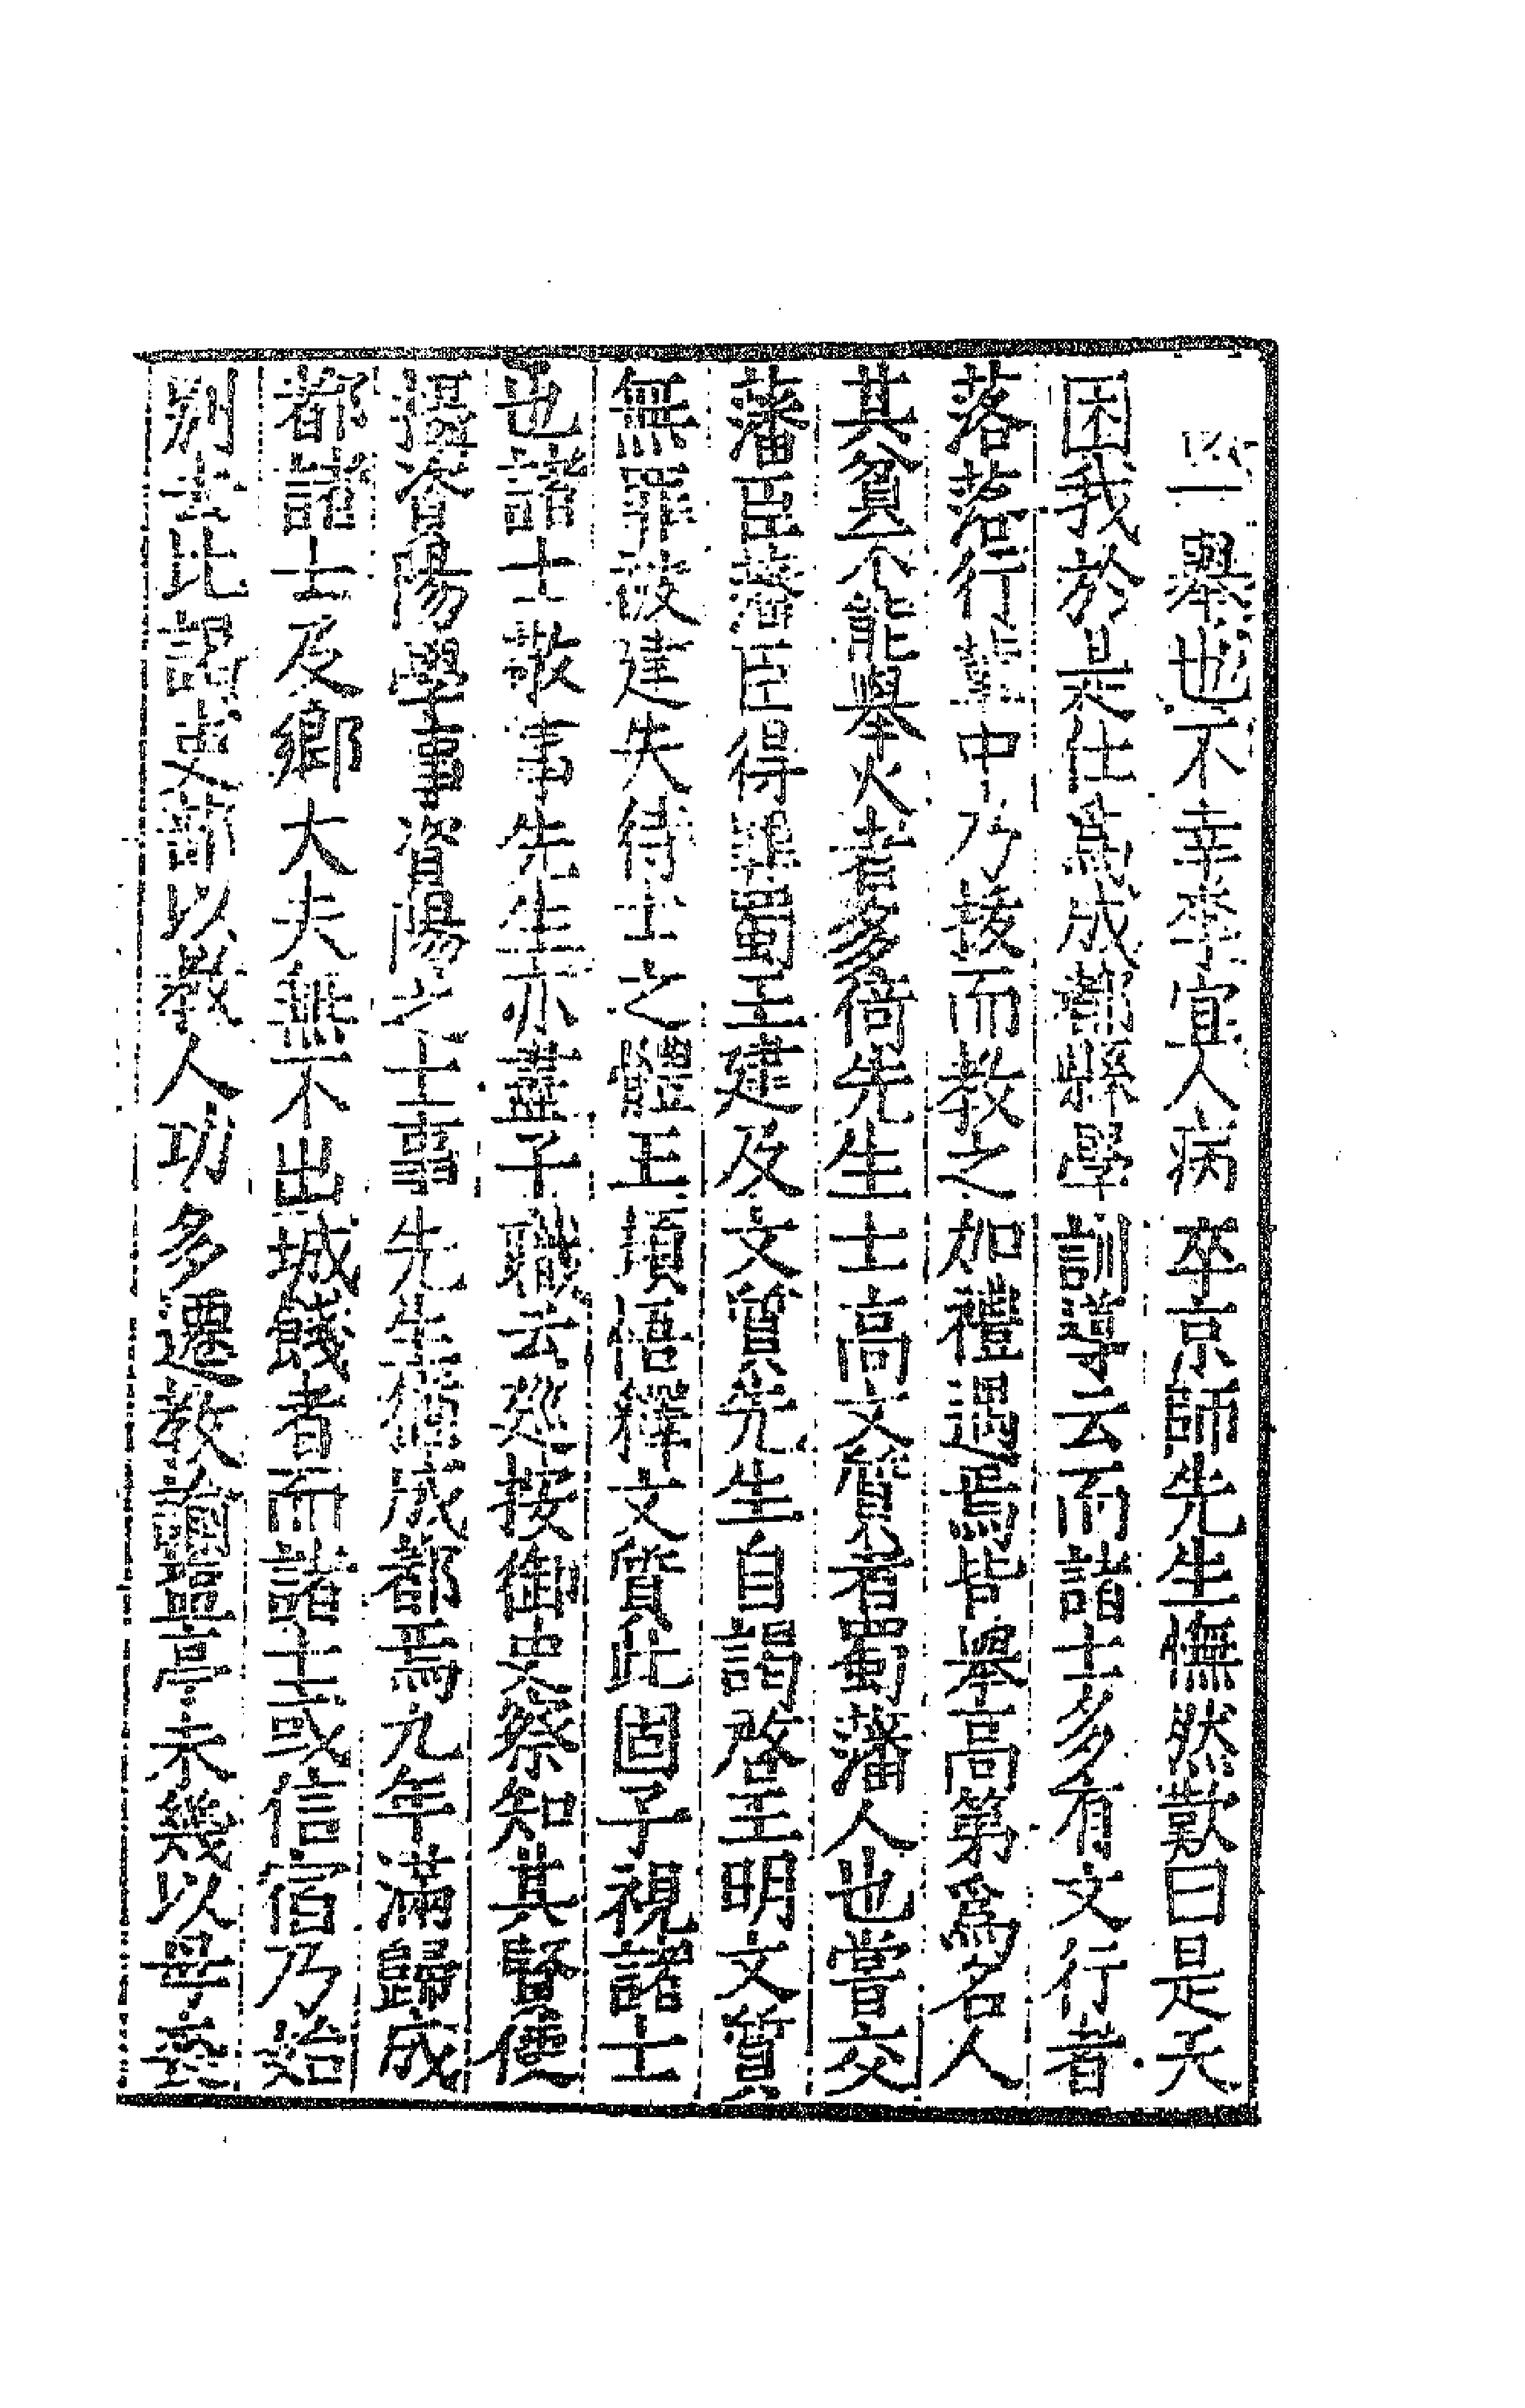 一舉也不幸李宜人病卒京師先生憮然歎曰是天
困我於是仕為成都縣學訓導云而諸士多有文行者
落落行輩中乃拔而教之加禮遇焉皆舉高第為名人
其貧不能舉火者多倚先生士高文質者蜀藩人也嘗交
藩臣藩臣得罪蜀王建及文質先生自謁啟王明文質
無罪被建失待士之體王頓悟釋文質此固予視諸士
也諸士敬事先生亦盡子職云巡按御史察知其賢便
攝資陽學事資陽之士喜先生猶成都焉九年滿歸成
都諸士及鄉大夫無不出城餞者而諸士或信宿乃始
別去比謁吏部以教人功多遷教諭未幾以母喪